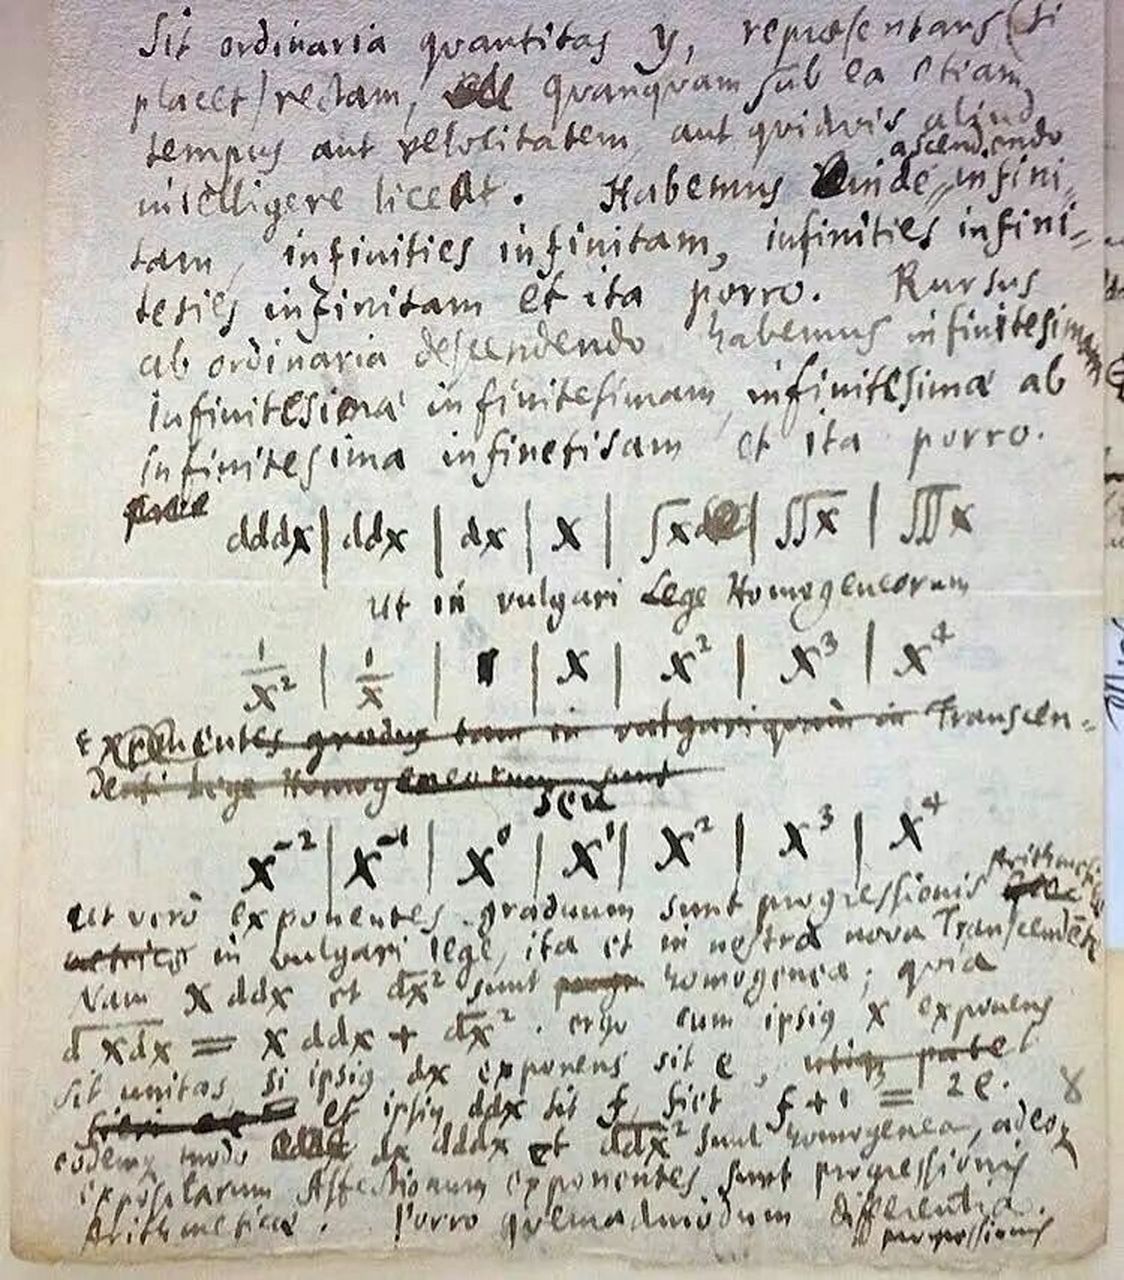 Sit ordinaria quantitas y, repræsentans (si
placet) rectam, quanquam sub ea etiam
tempus aut velocitatem aut quidvis aliud
ascendendo
intelligere liceat. Habemus inde infini-
tam, infinities infinitam, infinities infini-
tesies infinitam et ita porro. Rursus
ab ordinaria descendendo habemus infinitesimam
infinitesima infinitesimam, infinitesima ab
infinitesima infinetisam et ita porro.
dddx | ddx | dx | x | ∫x | ∫∫x | ∫∫∫x
ut in vulgari Lege Homogeneorum
1/x² | 1/x | 1 | x | x² | x³ | x⁴
Exponentes gradus tam in vulgari quam in Transcen-
denti Lege Homogeneorum sunt
seu
x⁻² | x⁻¹ | x⁰ | x¹ | x² | x³ | x⁴
ut verò exponentes graduum sunt progressionis Arithmeticæ
in vulgari lege, ita et in nostra nova Transcendẽte
Nam x ddx et dx² sunt homogenea; quia
d xdx = x ddx + dx². ergo cum ipsiq x exponens
sit unitas, si ipsiq dx exponens sit e, utiq patet
et ipsiq ddx sit f, fiet f + 1 = 2e. 8
eodemq modo dx dddx et ddx² sunt homogenea, adeoq
expositarum Affectionum exponentes sunt progressionis
Arithmeticæ. Porro quemadmodum differentia
progressionis